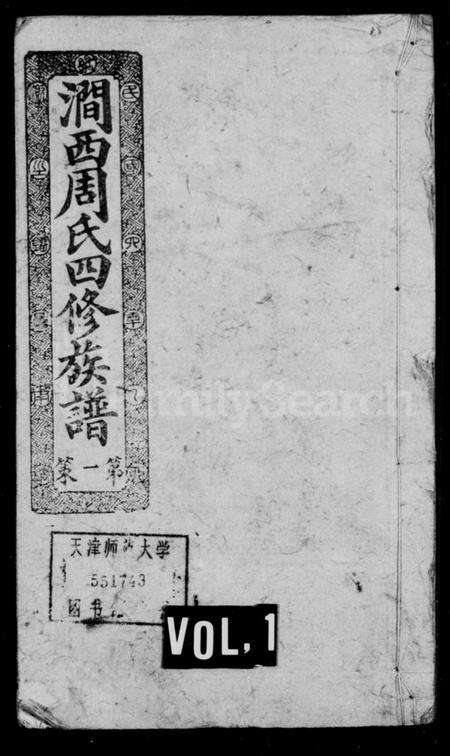 澗西周氏四修族譜
第一策
天津师范大学
551743
图书
VOL, 1
FamilySearch